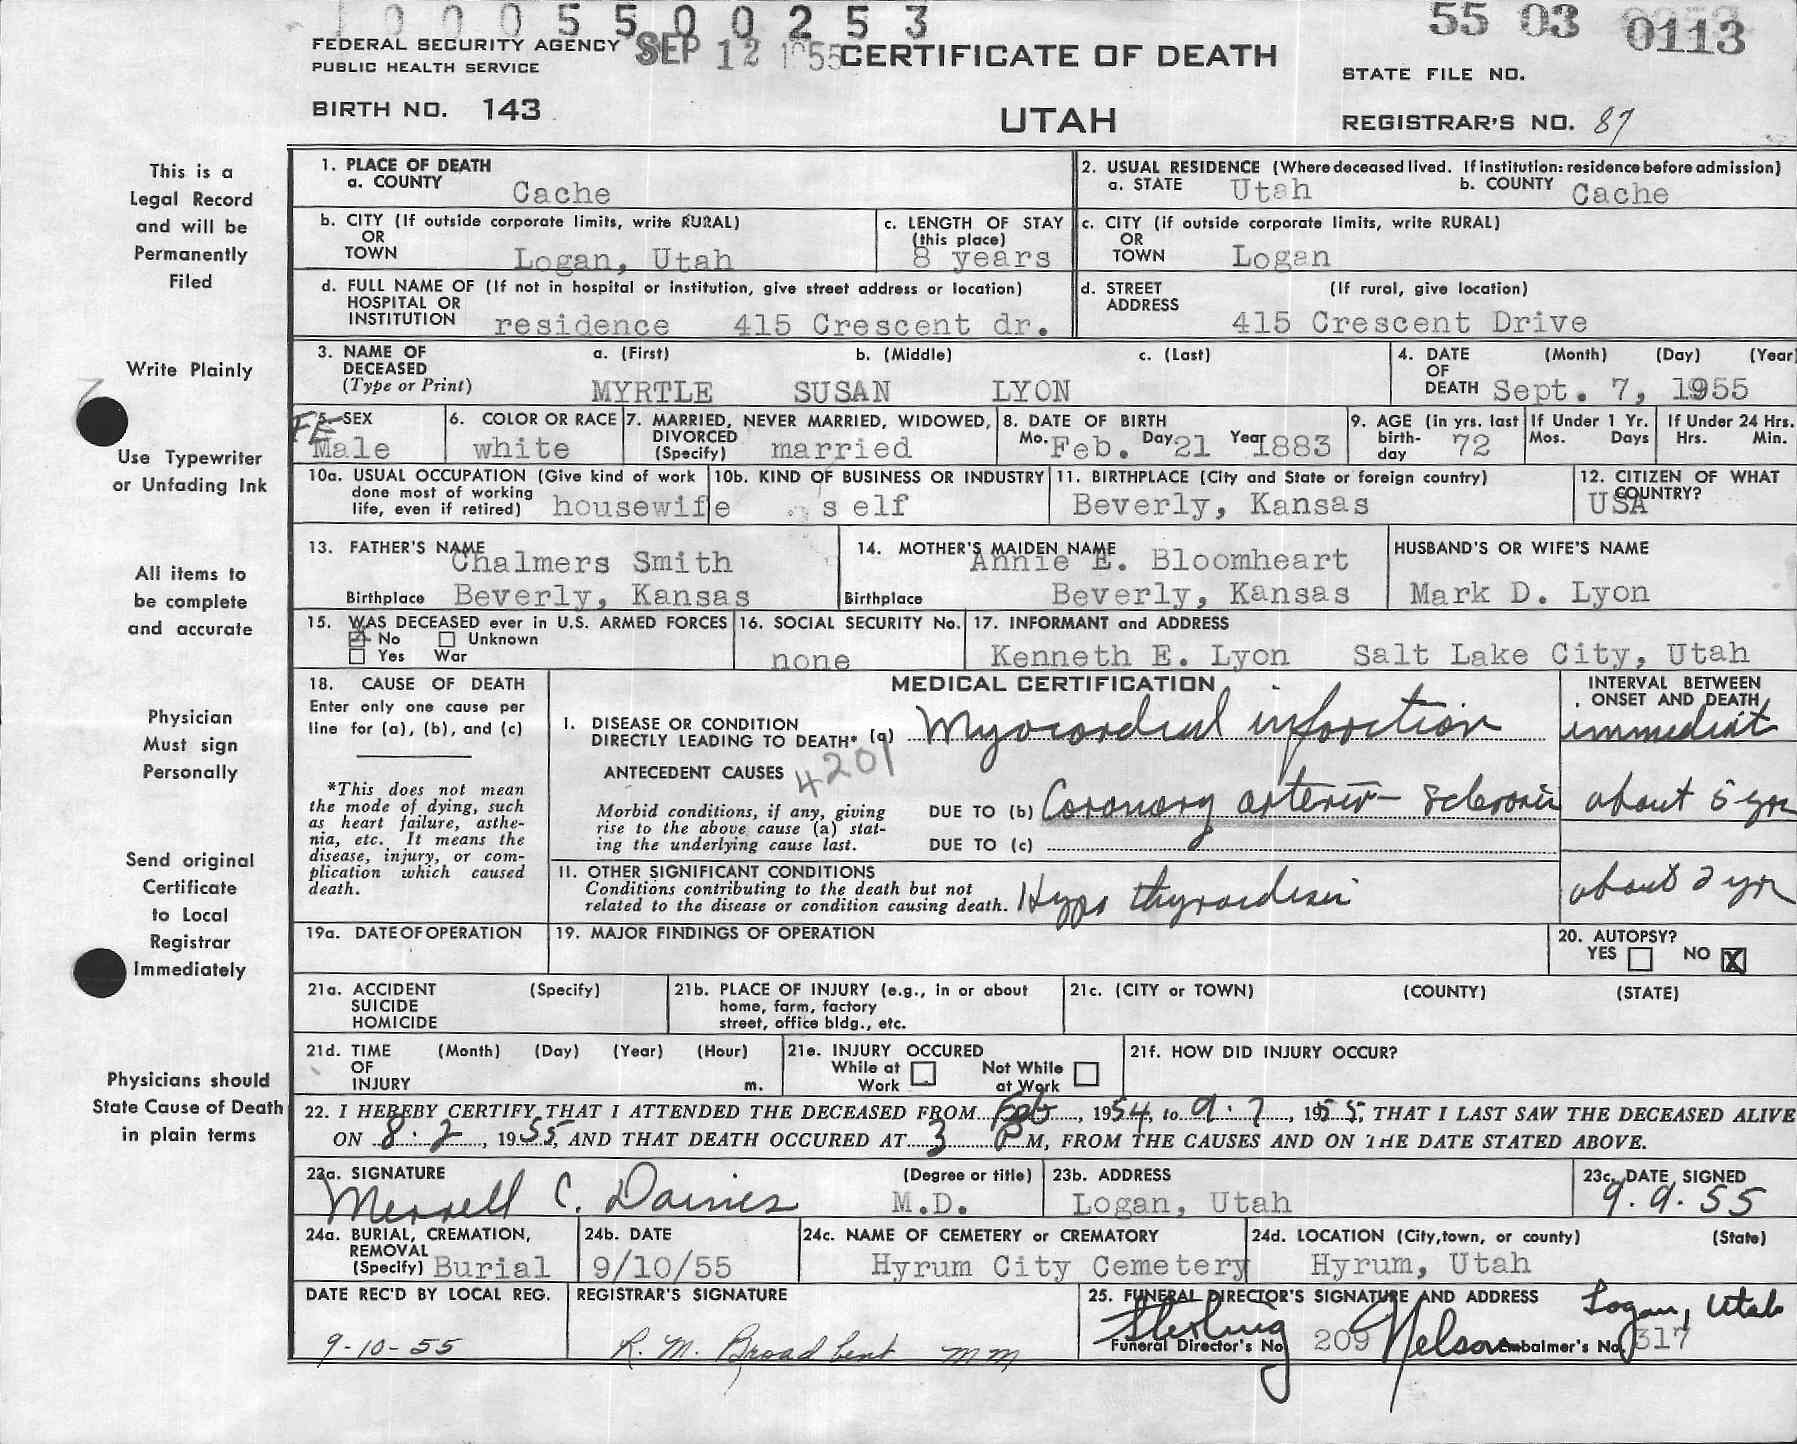 10005500253
55 03 0113
FEDERAL SECURITY AGENCY
PUBLIC HEALTH SERVICE
SEP 12 1955
CERTIFICATE OF DEATH
STATE FILE NO.
BIRTH NO. 143
UTAH
REGISTRAR'S NO. 87
This is a
Legal Record
and will be
Permanently
Filed
Write Plainly
Use Typewriter
or Unfading Ink
All items to
be complete
and accurate
Physician
Must sign
Personally
Send original
Certificate
to Local
Registrar
Immediately
Physicians should
State Cause of Death
in plain terms
1. PLACE OF DEATH
a. COUNTY Cache
2. USUAL RESIDENCE (Where deceased lived. If institution: residence before admission)
a. STATE Utah b. COUNTY Cache
b. CITY (If outside corporate limits, write RURAL)
OR
TOWN Logan, Utah
c. LENGTH OF STAY
(this place)
8 years
c. CITY (if outside corporate limits, write RURAL)
OR
TOWN Logan
d. FULL NAME OF (If not in hospital or institution, give street address or location)
HOSPITAL OR
INSTITUTION residence 415 Crescent dr.
d. STREET (If rural, give location)
ADDRESS
415 Crescent Drive
3. NAME OF a. (First) b. (Middle) c. (Last)
DECEASED
(Type or Print) MYRTLE SUSAN LYON
4. DATE (Month) (Day) (Year)
OF
DEATH Sept. 7, 1955
5. SEX
FE Male
6. COLOR OR RACE
white
7. MARRIED, NEVER MARRIED, WIDOWED,
DIVORCED
(Specify) married
8. DATE OF BIRTH
Mo. Feb. Day 21 Year 1883
9. AGE (in yrs. last
birth-
day 72
If Under 1 Yr.
Mos. Days
If Under 24 Hrs.
Hrs. Min.
10a. USUAL OCCUPATION (Give kind of work
done most of working
life, even if retired) housewife
10b. KIND OF BUSINESS OR INDUSTRY
self
11. BIRTHPLACE (City and State or foreign country)
Beverly, Kansas
12. CITIZEN OF WHAT
COUNTRY?
USA
13. FATHER'S NAME
Chalmers Smith
Birthplace Beverly, Kansas
14. MOTHER'S MAIDEN NAME
Annie E. Bloomheart
Birthplace Beverly, Kansas
HUSBAND'S OR WIFE'S NAME
Mark D. Lyon
15. WAS DECEASED ever in U.S. ARMED FORCES
No Unknown
Yes War
16. SOCIAL SECURITY No.
none
17. INFORMANT and ADDRESS
Kenneth E. Lyon Salt Lake City, Utah
18. CAUSE OF DEATH
Enter only one cause per
line for (a), (b), and (c)
*This does not mean
the mode of dying, such
as heart failure, asthe-
nia, etc. It means the
disease, injury, or com-
plication which caused
death.
MEDICAL CERTIFICATION
INTERVAL BETWEEN
ONSET AND DEATH
I. DISEASE OR CONDITION
DIRECTLY LEADING TO DEATH* (a) Myocordial infarction immediat
ANTECEDENT CAUSES 4201
Morbid conditions, if any, giving
rise to the above cause (a) stat-
ing the underlying cause last.
DUE TO (b) Coronary arterio-sclerosis about 5 yrs
DUE TO (c)
II. OTHER SIGNIFICANT CONDITIONS
Conditions contributing to the death but not
related to the disease or condition causing death. Hypo thyroidism about 2 yrs
19a. DATE OF OPERATION
19. MAJOR FINDINGS OF OPERATION
20. AUTOPSY?
YES NO X
21a. ACCIDENT (Specify)
SUICIDE
HOMICIDE
21b. PLACE OF INJURY (e.g., in or about
home, farm, factory
street, office bldg., etc.
21c. (CITY or TOWN) (COUNTY) (STATE)
21d. TIME (Month) (Day) (Year) (Hour)
OF
INJURY m.
21e. INJURY OCCURED
While at Work
Not While at Work
21f. HOW DID INJURY OCCUR?
22. I HEREBY CERTIFY THAT I ATTENDED THE DECEASED FROM Feb, 1954, to 9.7, 1955, THAT I LAST SAW THE DECEASED ALIVE
ON 8.2, 1955, AND THAT DEATH OCCURED AT 3 PM, FROM THE CAUSES AND ON THE DATE STATED ABOVE.
23a. SIGNATURE (Degree or title)
Merrell C. Daines M.D.
23b. ADDRESS
Logan, Utah
23c. DATE SIGNED
9.9.55
24a. BURIAL, CREMATION,
REMOVAL
(Specify) Burial
24b. DATE
9/10/55
24c. NAME OF CEMETERY or CREMATORY
Hyrum City Cemetery
24d. LOCATION (City, town, or county) (State)
Hyrum, Utah
DATE REC'D BY LOCAL REG.
9-10-55
REGISTRAR'S SIGNATURE
R. M. Broadbent mm
25. FUNERAL DIRECTOR'S SIGNATURE AND ADDRESS Logan, Utah
Sterling Nelson
Funeral Director's No. 209 Embalmer's No. 317